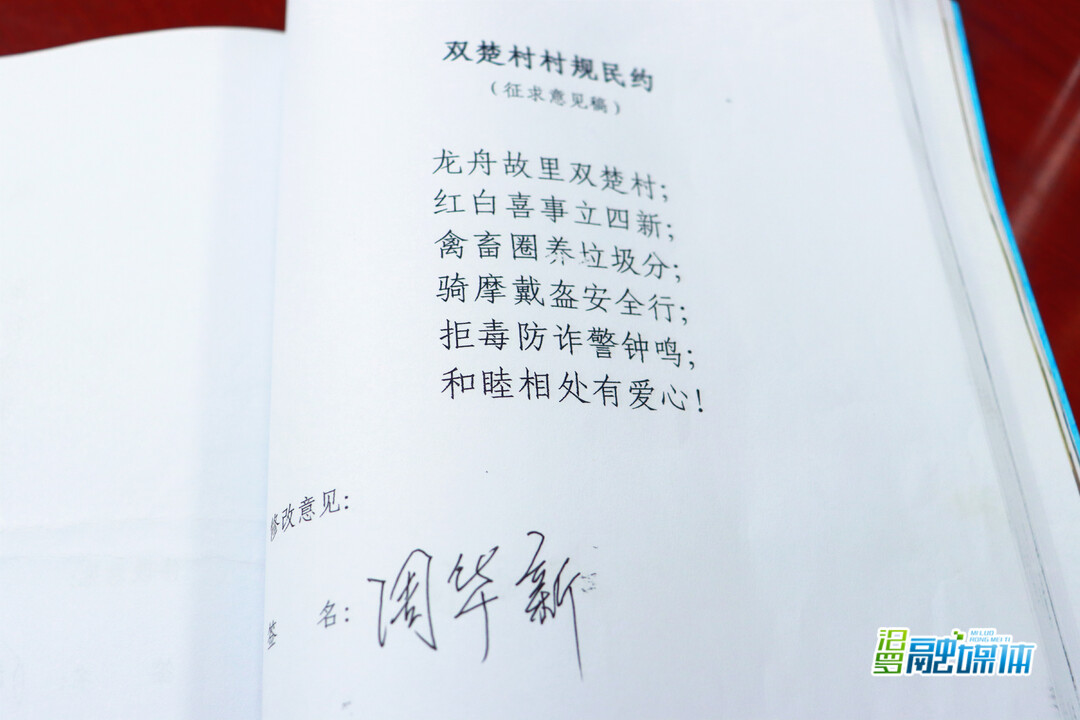 双楚村村规民约
（征求意见稿）
龙舟故里双楚村；
红白喜事立四新；
禽畜圈养垃圾分；
骑摩戴盔安全行；
拒毒防诈警钟鸣；
和睦相处有爱心！
修改意见：
签 名：周华新
汨罗融媒体
MI LUO
RONG MEI TI